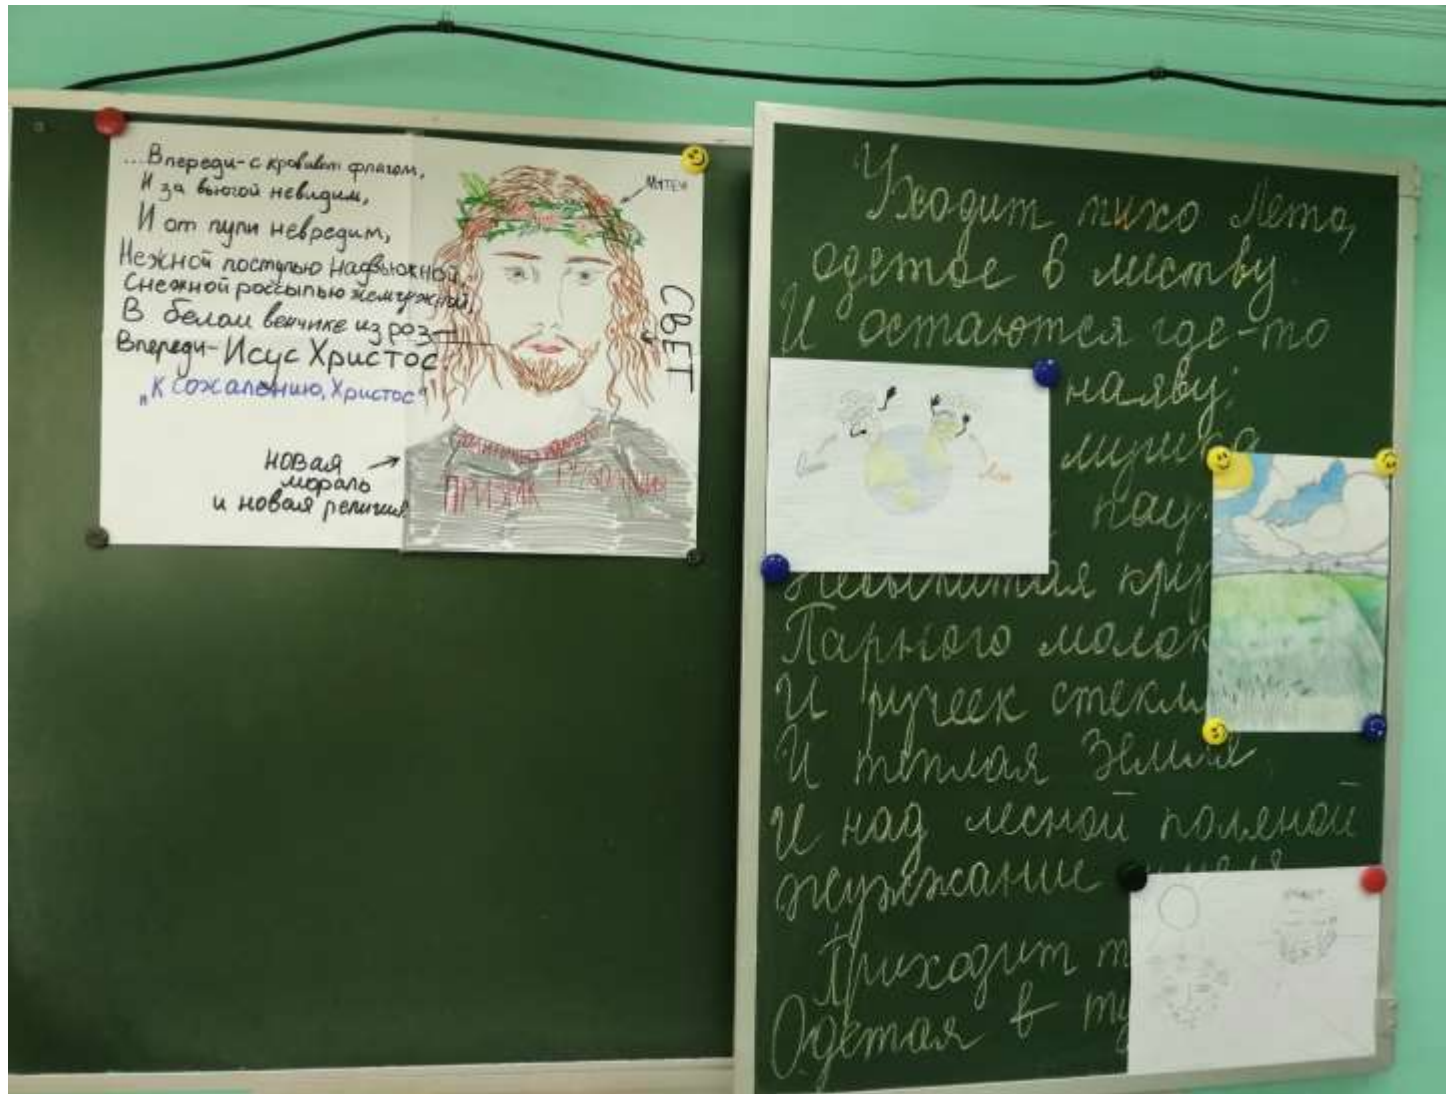 ...Впереди - с кровавым флагом,
И за вьюгой невидим,
И от пули невредим,
Нежной поступью надвьюжной,
Снежной россыпью жемчужной,
В белом венчике из роз -
Впереди - Исус Христос.
"К сожалению, Христос"
новая
мораль
и новая религия
СВЕТ
ПРИЗРАК РЕВОЛЮЦИИ
Уходит тихо Лето,
одетое в листву.
И остаются где-то
наяву:
Парного молок
И ручеек стекл
И теплая Земля,
И над лесной поляной
жужжание шмеля
Приходит т
Одетая в ту